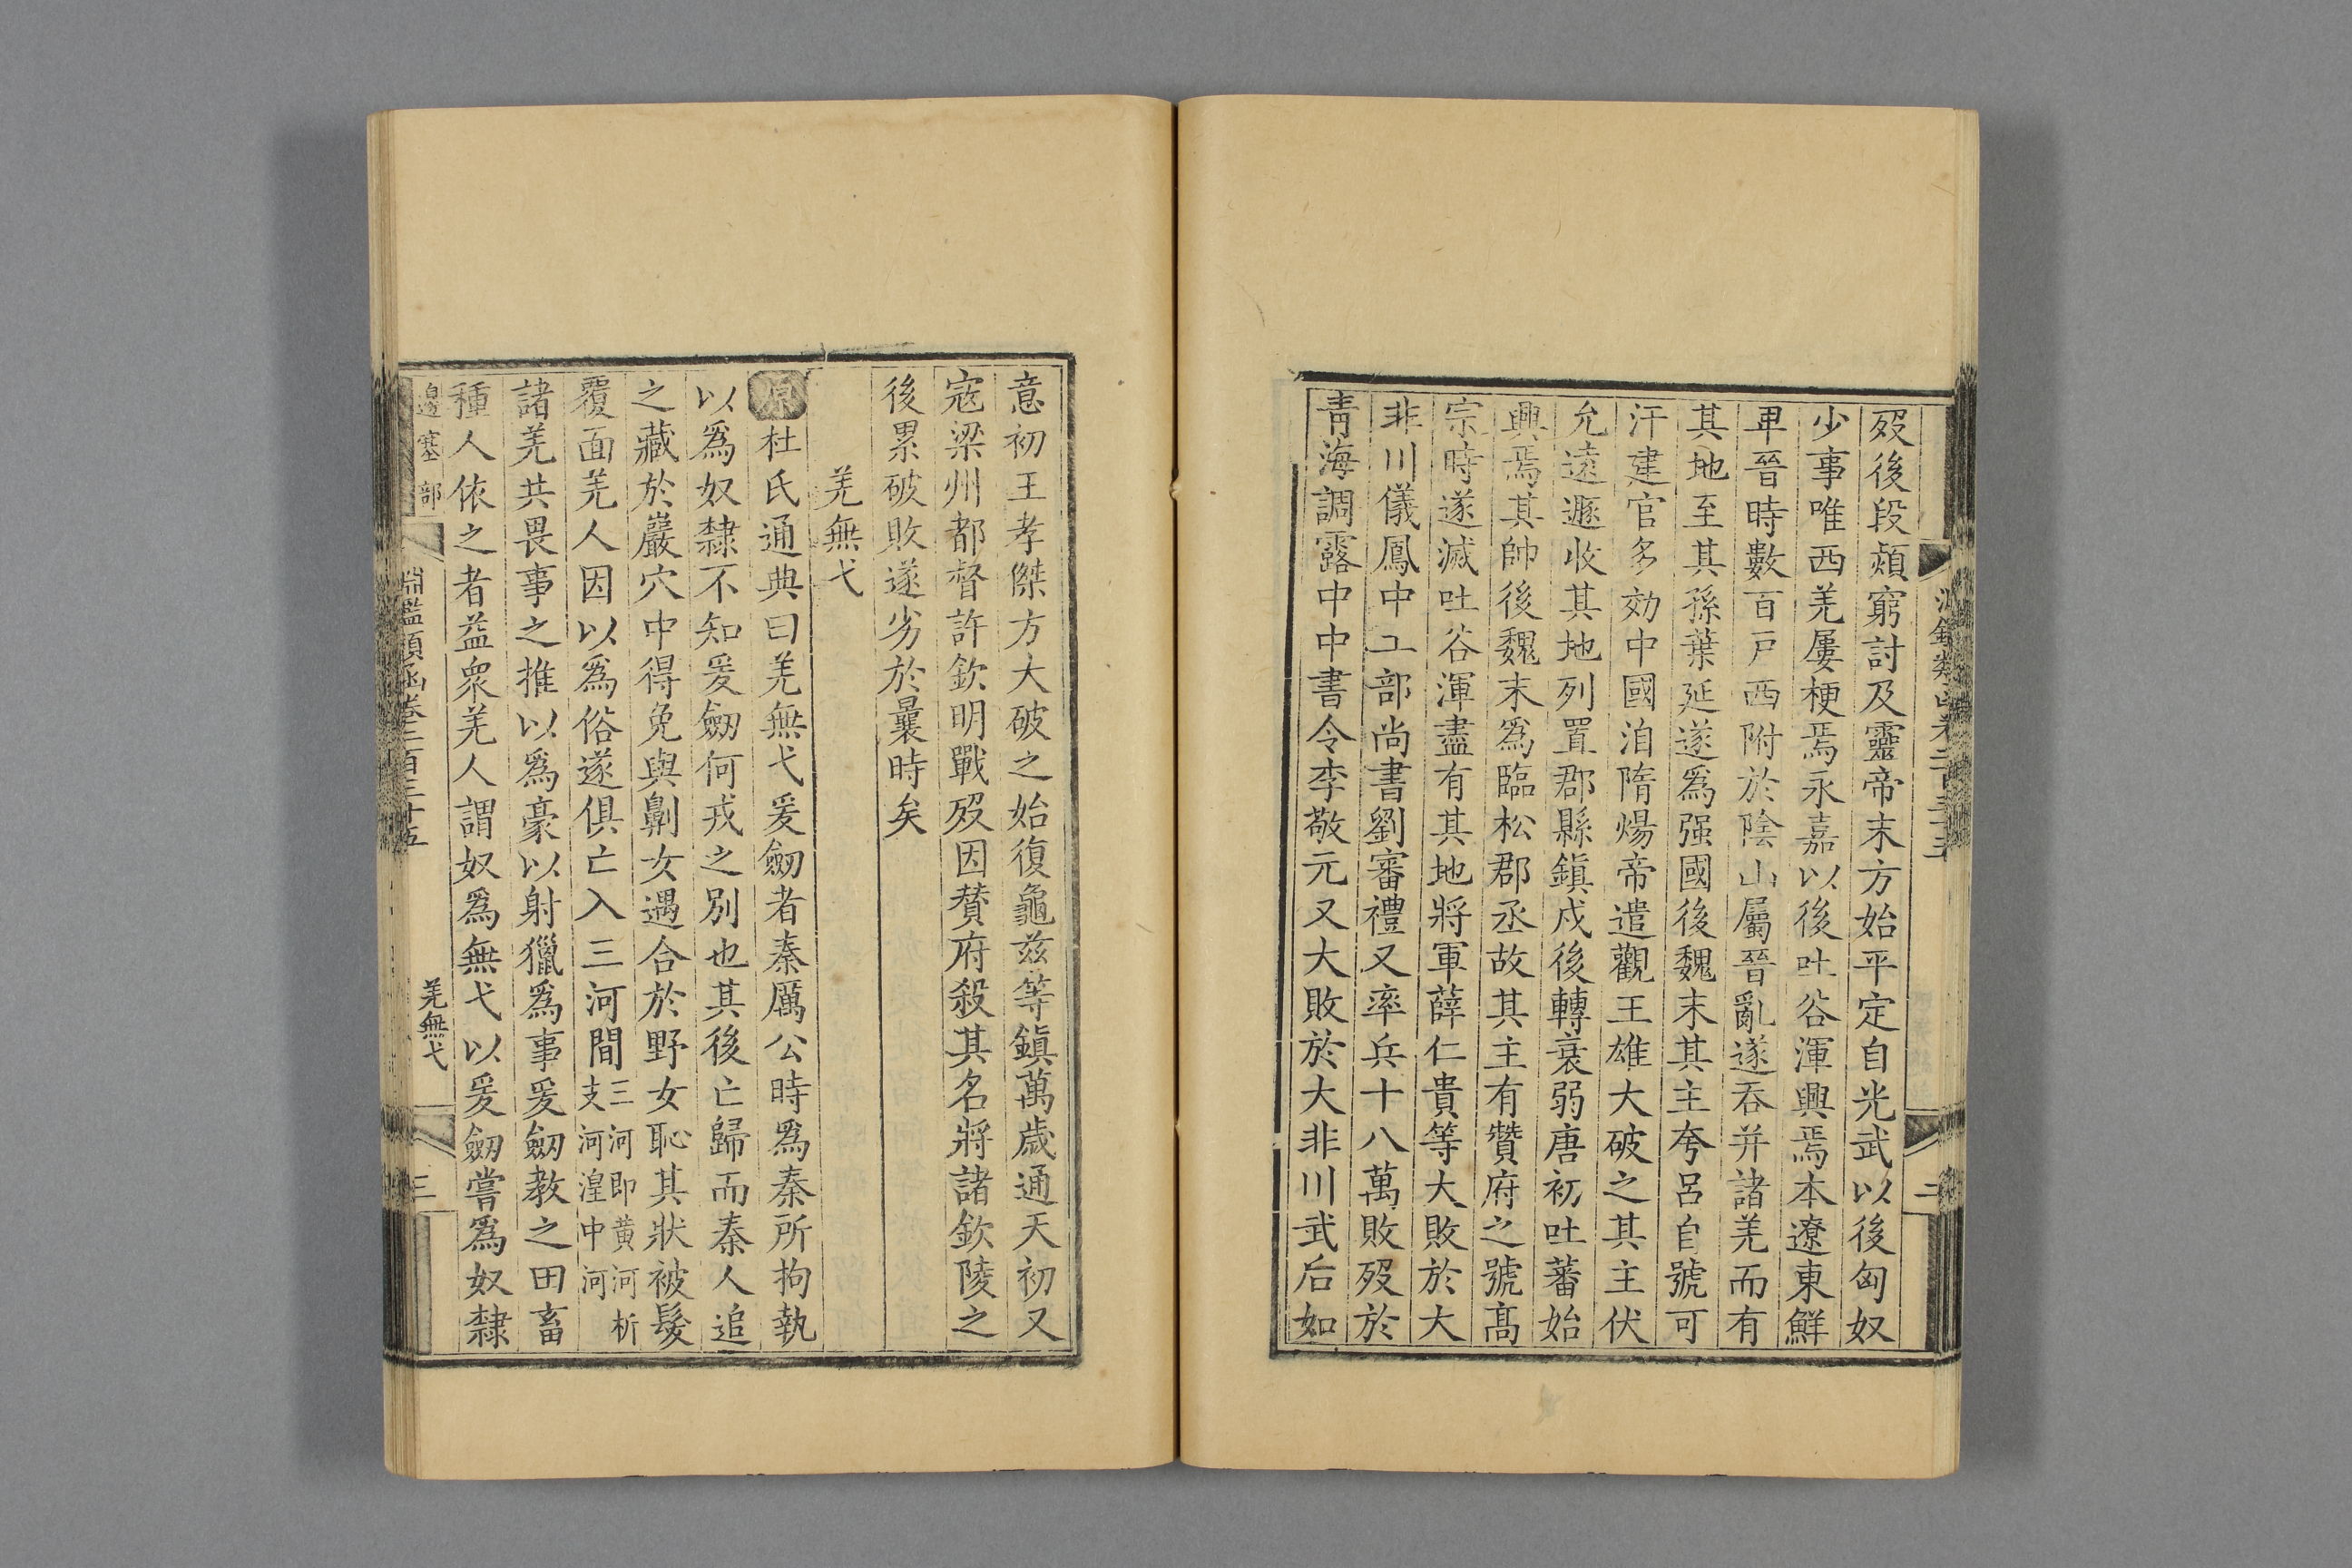 歿後段熲窮討及靈帝末方始平定自光武以後匈奴
少事唯西羌屢梗焉永嘉以後吐谷渾興焉本遼東鮮
卑晉時數百戶西附於陰山屬晉亂遂吞并諸羌而有
其地至其孫葉延遂爲强國後魏末其主夸呂自號可
汗建官多効中國洎隋煬帝遣觀王雄大破之其主伏
允遠遯收其地列置郡縣鎭戍後轉衰弱唐初吐蕃始
興焉其帥後魏末爲臨松郡丞故其主有贊府之號高
宗時遂滅吐谷渾盡有其地將軍薛仁貴等大敗於大
非川儀鳳中工部尚書劉審禮又率兵十八萬敗歿於
靑海調露中中書令李敬元又大敗於大非川武后如
意初王孝傑方大破之始復龜茲等鎭萬歲通天初又
寇梁州都督許欽明戰歿因贊府殺其名將諸欽陵之
後累破敗遂劣於曩時矣
羌無弋
原杜氏通典曰羌無弋爰劒者秦厲公時爲秦所拘執
以爲奴隸不知爰劒何戎之別也其後亡歸而秦人追
之藏於巖穴中得免與劓女遇合於野女恥其狀被髮
覆面羌人因以爲俗遂俱亡入三河間三河即黃河析支河湟中河
諸羌共畏事之推以爲豪以射獵爲事爰劒教之田畜
種人依之者益衆羌人謂奴爲無弋以爰劒嘗爲奴隸
邊塞部
淵鑑類函卷二百三十五
羌無弋
三